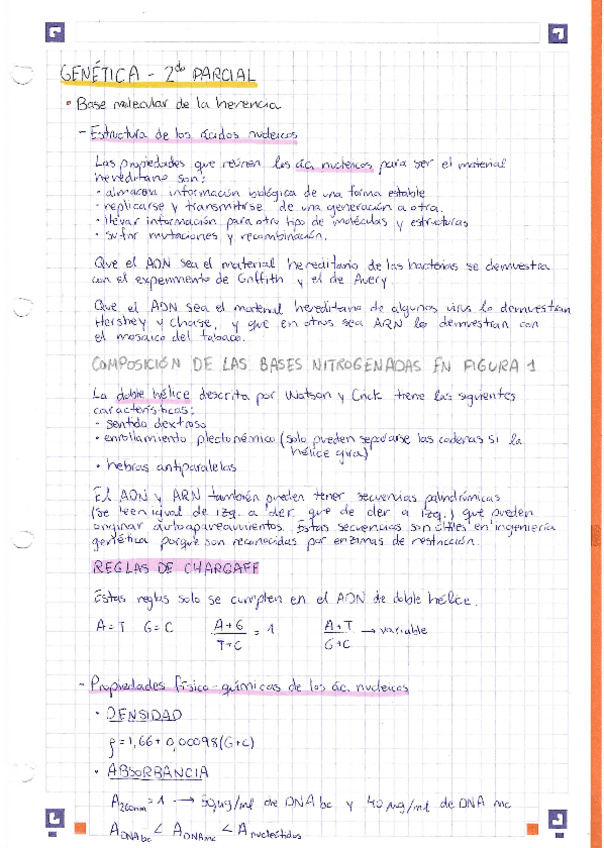 GENÉTICA - 2do PARCIAL
• Base molecular de la herencia
- Estructura de los ácidos nucleicos
Las propiedades que reúnen los ác. nucleicos para ser el material
hereditario son:
• almacena información biológica de una forma estable
• replicarse y transmitirse de una generación a otra.
• llevar información para otro tipo de moléculas y estructuras
• sufrir mutaciones y recombinación.
Que el ADN sea el material hereditario de las bacterias se demuestra
con el experimento de Griffith y el de Avery.
Que el ADN sea el material hereditario de algunos virus lo demuestran
Hershey y Chase, y que en otros sea ARN lo demuestran con
el mosaico del tabaco.
COMPOSICIÓN DE LAS BASES NITROGENADAS EN FIGURA 1
La doble hélice descrita por Watson y Crick tiene las siguientes
características:
- sentido dextroso
• enrollamiento plectonémico (solo pueden separarse las cadenas si la
hélice gira)
• hebras antiparalelas
El ADN y ARN también pueden tener secuencias palindrómicas
(se leen igual de izq. a der. que de der a izq.) que pueden
originar autoapareamientos. Estas secuencias son útiles en ingeniería
genética porque son reconocidas por enzimas de restricción.
REGLAS DE CHARGAFF
Estas reglas solo se cumplen en el ADN de doble hélice.
A=T G=C A+G/T+C = 1 A+T/G+C → variable
- Propiedades físico-químicas de los ác. nucleicos
• DENSIDAD
ρ = 1,66 + 0,00098(G+C)
• ABSORBANCIA
A260nm = 1 → 50 µg/ml de DNA bc y 40 µg/ml de DNA mc
ADNAbc < ADNAmc < Anucleótidos